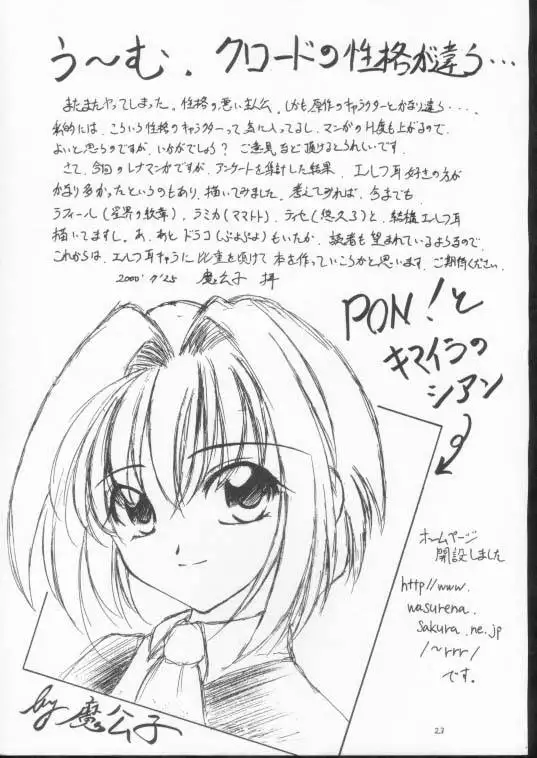 う〜む、クロードの性格が違う…
またまたやってしまった。性格の悪い主人公。しかも原作のキャラクターとかなり違う・・・・。
私的には、こういう性格のキャラクターって気に入ってるし、マンガのH度も上がるので、
よいと思うのですが、いかがでしょう？ ご意見など頂けるとうれしいです。
さて、今回のレナマンガですが、アンケートを集計した結果、エルフ耳好きの方が
かなり多かったというのもあり、描いてみました。考えてみれば、今までも
ラフィール(星界の紋章)、ラミカ(ママトト)、ティセ(悠久3)と、結構エルフ耳
描いてますし。あ、あとドラコ(ぷよぷよ)もいたか。読者も望まれているようなので、
これからは、エルフ耳キャラに比重を傾けて本を作っていこうかと思います。ご期待ください。
2000' 7/25 魔公子 拝
PON!と
キマイラの
シアン
ホームページ
開設しました
http//www.
wasurena.
sakura.ne.jp
/~rrr/
です。
by 魔公子
23